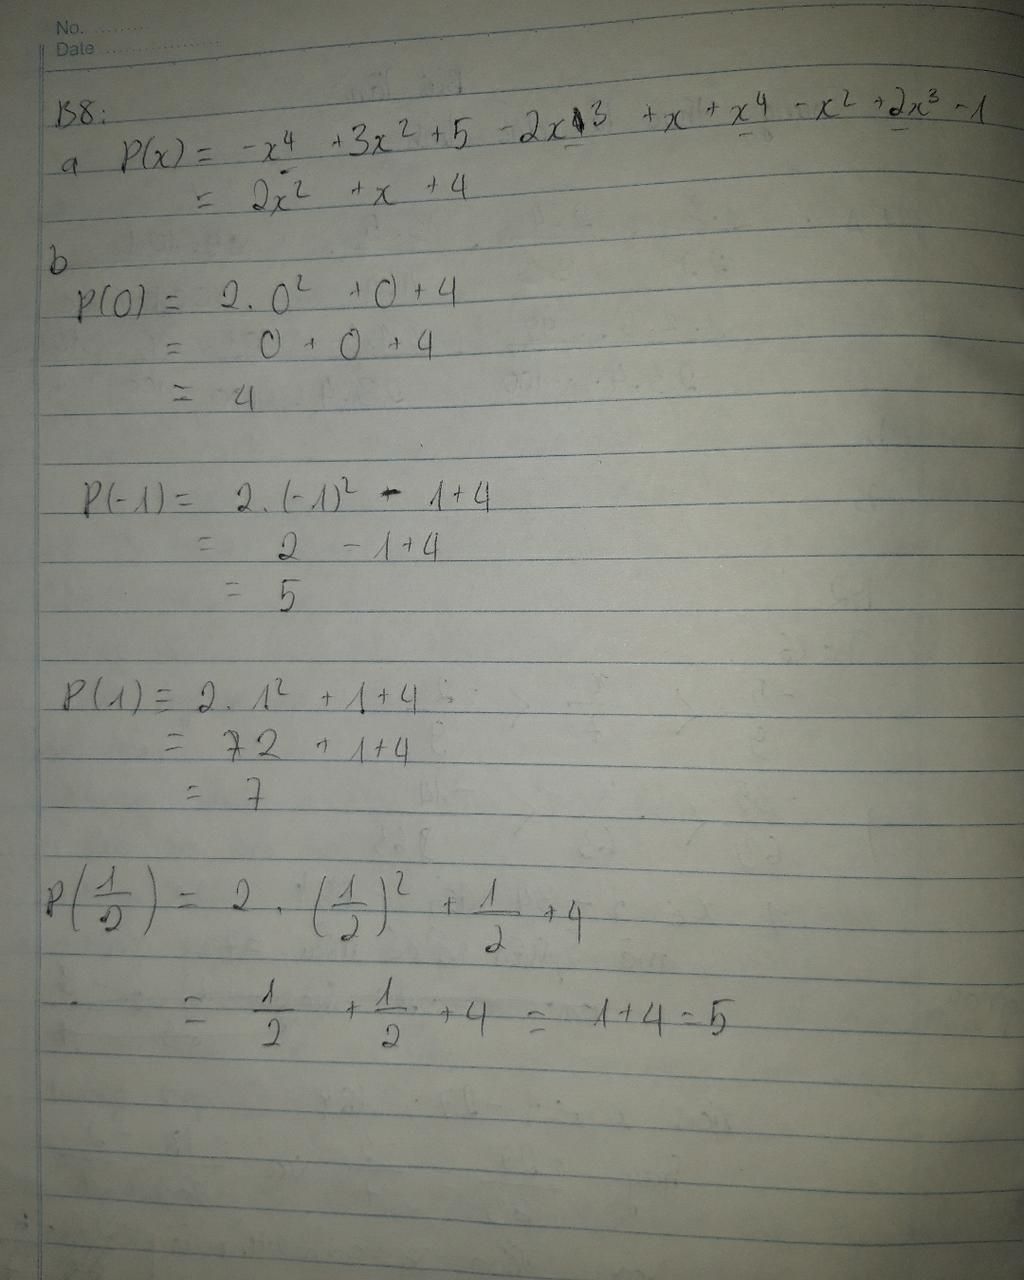 No. .........
Date .....................
B8:
a P(x) = -x⁴ + 3x² + 5 - 2x³ + x + x⁴ - x² + 2x³ - 1
= 2x² + x + 4
b
P(0) = 2. 0² + 0 + 4
= 0 + 0 + 4
= 4
P(-1) = 2. (-1)² - 1 + 4
= 2 - 1 + 4
= 5
P(1) = 2. 1² + 1 + 4
= 2 + 1 + 4
= 7
P(1/2) = 2 . (1/2)² + 1/2 + 4
= 1/2 + 1/2 + 4 = 1 + 4 = 5